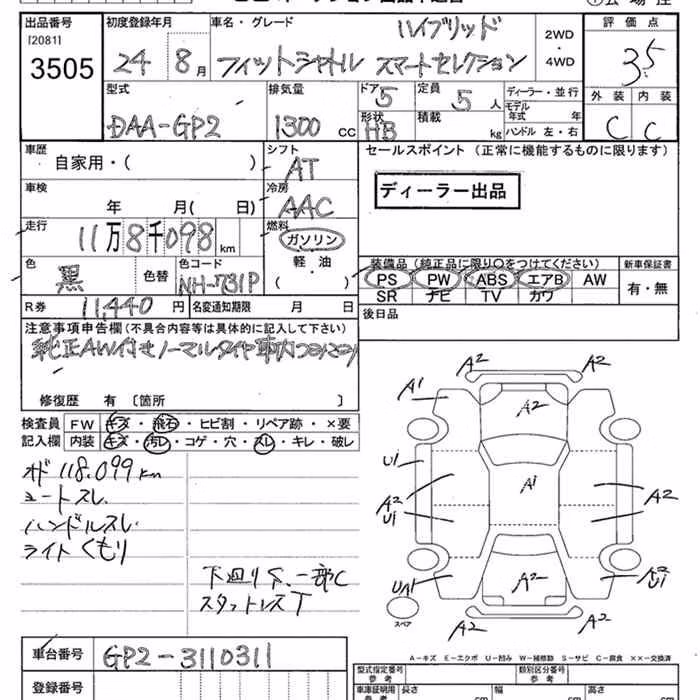 出品番号 初度登録年月 車名・グレード ハイブリッド 2WD・4WD 評価点
[2081]
3505 24 8月 フィットシャトル スマートセレクション 3.5
型式 排気量 ドア 5 定員 5人 ディーラー・並行 外装 内装
DAA-GP2 1300cc 形状 HB 積載 kg モデル年式 年式 C C
ハンドル 左・右
車歴 シフト セールスポイント (正常に機能するものに限ります)
自家用・( ) AT
車検 冷房 ディーラー出品
年 月( 日) AAC
走行 燃料
11万8千098km ガソリン
色 色コード 軽・油 装備品 (純正品に限り○をつけてください) 新車保証書
黒 色替 NH-731P ( ) PS PW ABS エアB AW 有・無
SR ナビ TV カワ
R券 11,440円 名変通知期限 月 日 後日品
注意事項申告欄(不具合内容等は具体的に記入して下さい)
純正AW付きノーマルタイヤ車内
修復歴 有 [箇所 ]
検査員 FW キズ・飛石・ヒビ割・リペア跡・×要
記入欄 内装 キズ・汚レ・コゲ・穴・スレ・キレ・破レ
オド 118,099km
シートスレ
ハンドルスレ
ライトくもり
下廻りS、一部C
スタットレスT
A2 A2
A1 A2
U1 A1
A2 A2
U1
UA1 A2 A2
U1
スペア A2 A2
A-キズ E-エクボ U-凹み W-補修跡 S-サビ C-腐食 ××-交換済
車台番号 GP2-3110311
登録番号
型式指定番号 参考 類別区分番号 参考
車庫証明用 参考 長さ cm 幅 cm 高さ cm